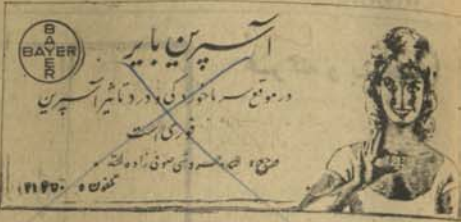 BAYER
BAYER
آسپرین بایر
در موقع سرماخوردگی و درد تاثیر آسپرین
فوری است
تلفون ۵